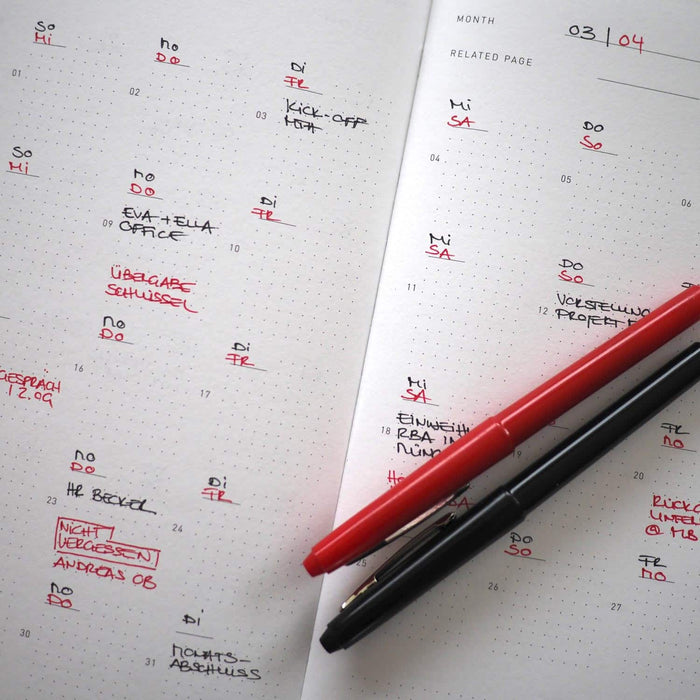 MONTH 03 | 04
RELATED PAGE
SO
MI
01
MO
DO
02
DI
FR
03 KICK-OFF
MI
SA
04
DO
SO
05
06
SO
MI
MO
DO
09 EVA + ELLA
OFFICE
ÜBERGABE
SCHLÜSSEL
DI
FR
10
MI
SA
11
DO
SO
12 VORSTELLUNG
PROJEKT
MO
DO
16
DI
FR
17
MI
SA
18
RBA
19
FR
MO
20
@ MB
GESPRÄCH
12.09
MO
DO
23 HR BECKER
NICHT
VERGESSEN
ANDREAS OB
DI
FR
24
25
DO
SO
26
FR
MO
27
MO
DO
30
DI
31 MONATS-
ABSCHLUSS